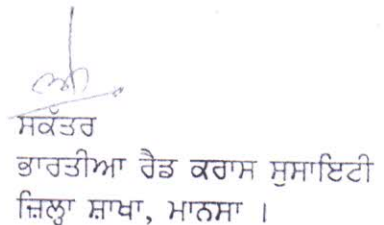 ਸਕੱਤਰ
ਭਾਰਤੀਆ ਰੈਡ ਕਰਾਸ ਸੁਸਾਇਟੀ
ਜ਼ਿਲ੍ਹਾ ਸ਼ਾਖਾ, ਮਾਨਸਾ ।